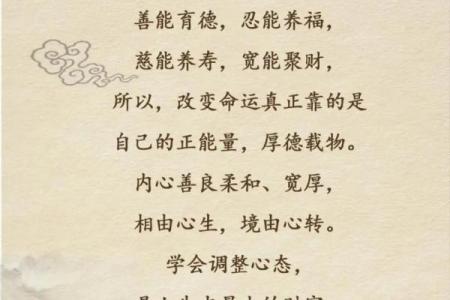 善能育德，忍能养福，
慈能养寿，宽能聚财，
所以，改变命运真正靠的是
自己的正能量，厚德载物。
内心善良柔和、宽厚，
相由心生，境由心转。
学会调整心态，